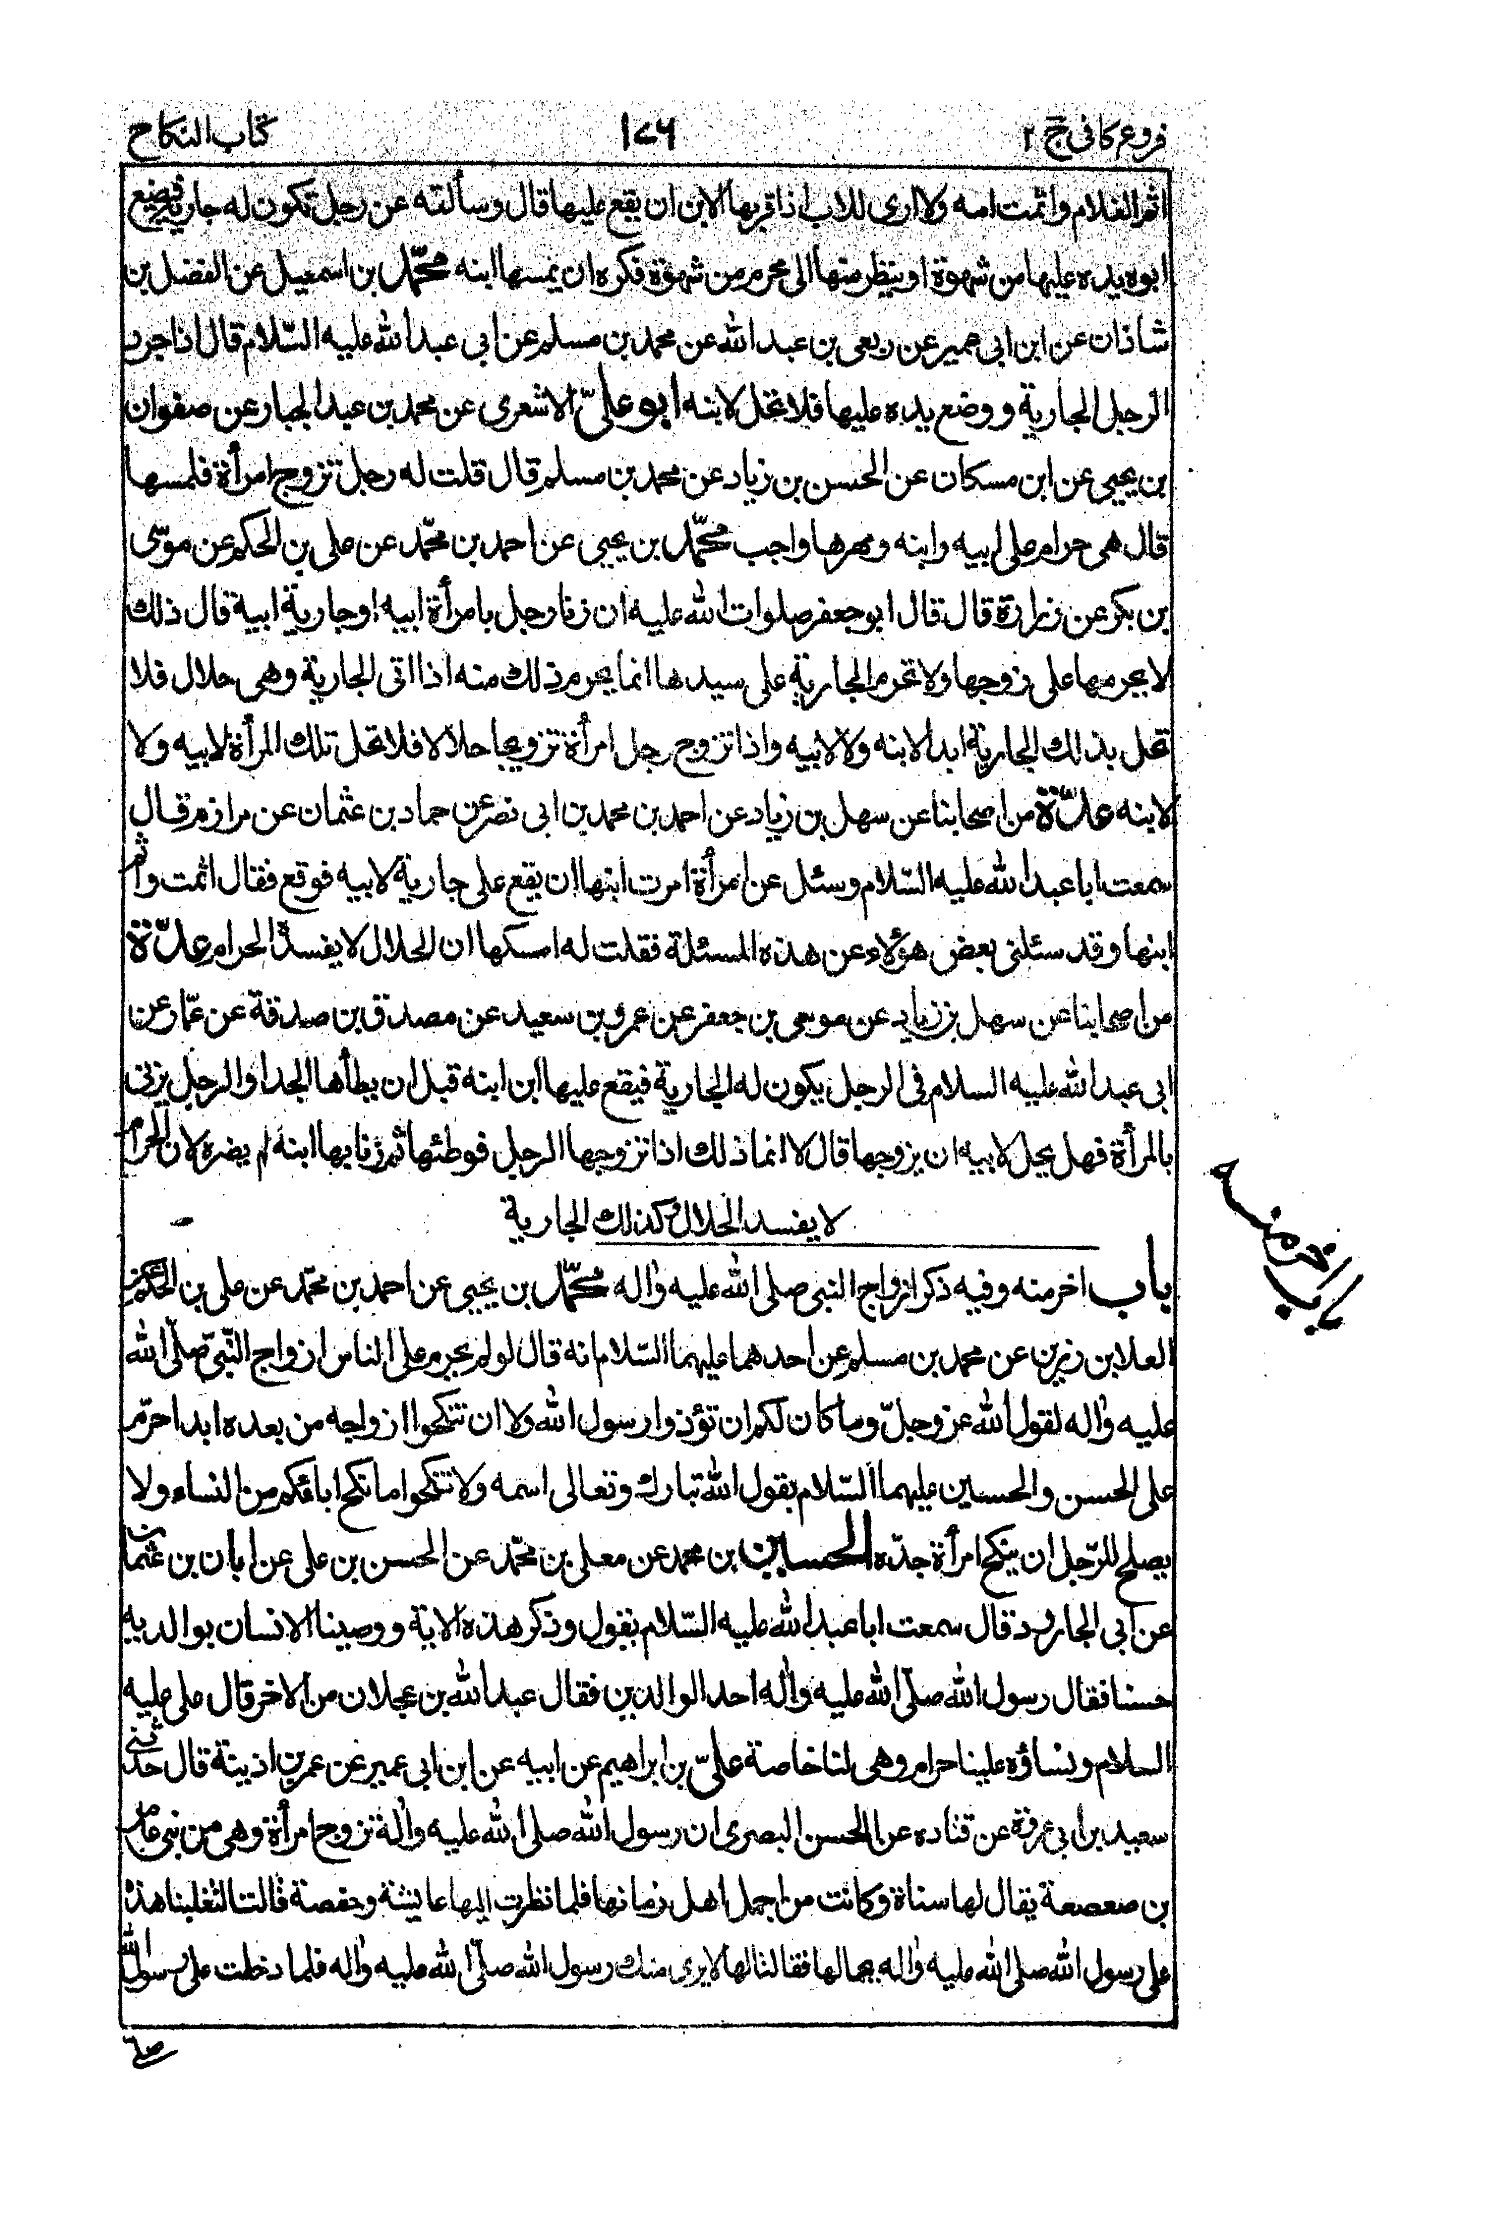 فروع کافی ج ۲
۱۷۶
کتاب النکاح
اثم الغلام واثمت امه ولا اری للاب اذا قربها الابن ان یقع علیها قال وسألته عن رجل تکون له جاریة فیضع
ابوه یده علیها من شهوة او ینظر منها الی محرم من شهوة فکره ان یمسها ابنه محمّد بن اسمعیل عن الفضل بن
شاذان عن ابن ابی عمیر عن ربعی بن عبد الله عن محمد بن مسلم عن ابی عبد الله علیه السّلام قال اذا جرد
الرجل الجاریة ووضع یده علیها فلا تحل لابنه ابو علیّ الاشعری عن محمد بن عبد الجبار عن صفوان
بن یحیی عن ابن مسکان عن الحسن بن زیاد عن محمد بن مسلم قال قلت له رجل تزوج امرأة فلمسها
قال هی حرام علی ابیه وابنه ومهرها واجب محمّد بن یحیی عن احمد بن محمّد عن علی بن الحکم عن موسی
بن بکر عن زرارة قال قال ابو جعفر صلوات الله علیه ان زنا رجل بامرأة ابیه او جاریة ابیة فال ذلك
لا یحرمها علی زوجها ولا تحرم الجاریة علی سیدها انما یحرم ذلك منه اذا اتی الجاریة وهی حلال فلا
تحل بذلك الجاریة ابدا لابنه ولا لابیه واذا تزوج رجل امرأة تزویجا حلالا فلا تحل تلك المرأة لابیه ولا
لابنه عدّة من اصحابنا عن سهل بن زیاد عن احمد بن محمد بن ابی نصر عن حماد بن عثمان عن مرازم قال
سمعت ابا عبد الله علیه السّلام وسئل عن امرأة امرت ابنها ان یقع علی جاریة لابیه فوقع فقال اثمت واثم
ابنها وقد سئلنی بعض هؤلاء عن هذه المسئلة فقلت له امسکها ان الحلال لا یفسده الحرام عدّة
من اصحابنا عن سهل بن زیاد عن موسی بن جعفر عن عمرو بن سعید عن مصدق بن صدقة عن عمّار عن
ابی عبد الله علیه السلام فی الرجل یکون له الجاریة فیقع علیها ابن ابنه قبل ان یطأها الجد او الرجل یزنی
بالمرأة فهل یحل لابیه ان یزوجها قال لا انما ذلك اذا تزوجها الرجل فوطئها ثم زنا بها ابنه لم یضره لان الحرام
لا یفسد الحلال وکذلك الجاریة
باب اخر منه
باب اخر منه وفیه ذکر ازواج النبی صلی الله علیه واله محمّد بن یحیی عن احمد بن محمّد عن علی بن الحکم عن
العلا بن رزین عن محمد بن مسلم عن احدهما علیهما السّلام انه قال لو لم یحرم علی الناس ازواج النّبیّ صلّی الله
علیه واله لقول الله عز وجلّ وما کان لکم ان تؤذوا رسول الله ولا ان تنکحوا ازواجه من بعده ابدا حرّم
علی الحسن والحسین علیهما السّلام بقول الله تبارك وتعالی اسمه ولا تنکحوا ما نکح اباءکم من النساء ولا
یصلح للرّجل ان ینکح امرأة جدّه الحسین بن محمد عن معلی بن محمّد عن الحسن بن علی عن ابان بن عثمان
عن ابی الجارود قال سمعت ابا عبد الله علیه السّلام یقول وذکر هذه الایة ووصینا الانسان بوالدیه
حسنا فقال رسول الله صلّی الله علیه واله احد الوالدین فقال عبد الله بن عجلان من الاخر قال علی علیه
السلام ونساؤه علینا حرام وهی لنا خاصة علیّ بن ابراهیم عن ابیه عن ابن ابی عمیر عن عمر بن اذینة قال حدثنی
سعید بن ابی عروة عن قتاده عن الحسن البصری ان رسول الله صلی الله علیه واله تزوج امرأة وهی من بنی عامر
بن صعصعة یقال لها سناة وکانت من اجمل اهل زمانها فلما نظرت الیها عایشة وحفصة قالتا لتغلبنا هذه
علی رسول الله صلی الله علیه واله بجمالها فقالتا لها لا یری منك رسول الله صلّی الله علیه واله فلما دخلت علی رسول الله
صلی